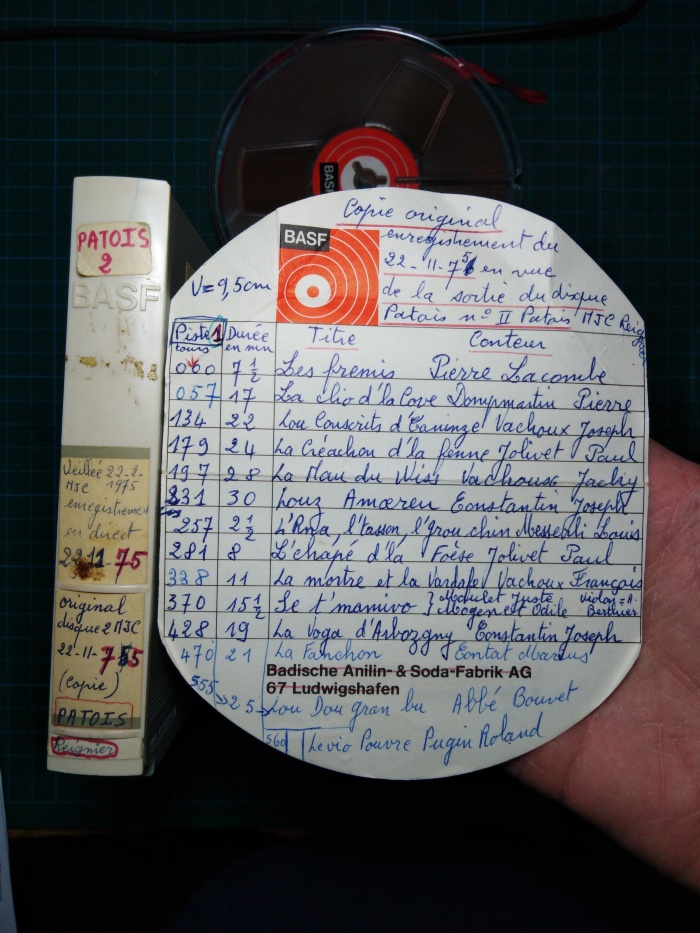 BASF
PATOIS
2
BASF
Veillée 22-2-
MJC 1975
enregistrement
en direct
22 11-75
original
disque 2 MJC
22-11-75
(Copie)
PATOIS
Reignier
Copie original
BASF
enregistrement du
22-11-75 en vue
V=9,5cm
de la sortie du disque
Patois n° II Patois MJC Reig
Piste 1 Durée Titre Conteur
tours en mn
060 7 1/2 Les fremis Pierre Lacombe
057 17 La clio d'la Cove Dompmartin Pierre
134 22 Lou Conscrits d' Vachoux Joseph
179 24 La Créachon d'la fenne Jolivet Paul
197 28 La Mau du Vachoux
231 30 Louz Amœreu Constantin Joseph
257 2 1/2 L'Rna, l'tasson, l'grou chin Messerli Louis
281 8 L'chapé d'la Foèse Jolivet Paul
338 11 La mortre et la Vachoux Français
370 15 1/2 Le t'mamivo } Juste Violon = A.
Mogenet Odile Berthier
428 19 La Voga d' Constantin Joseph
470 21 La Fanchon Contat
Badische Anilin- & Soda-Fabrik AG
67 Ludwigshafen
555 25 Lou Dou gran bu Abbé Bouvet
560 Levio Pouvre Pugin Roland